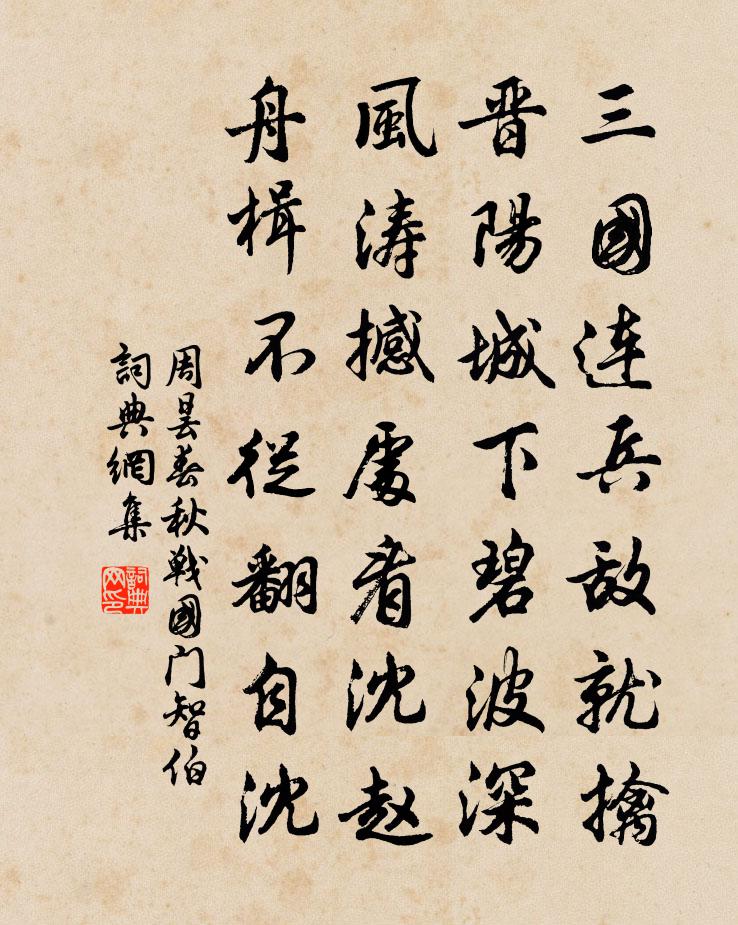 三國连兵敌就擒
晋陽城下碧波深
風涛撼處看沈赵
舟楫不從翻自沈
周昙春秋戰國门智伯
詞典網集
詞典网印